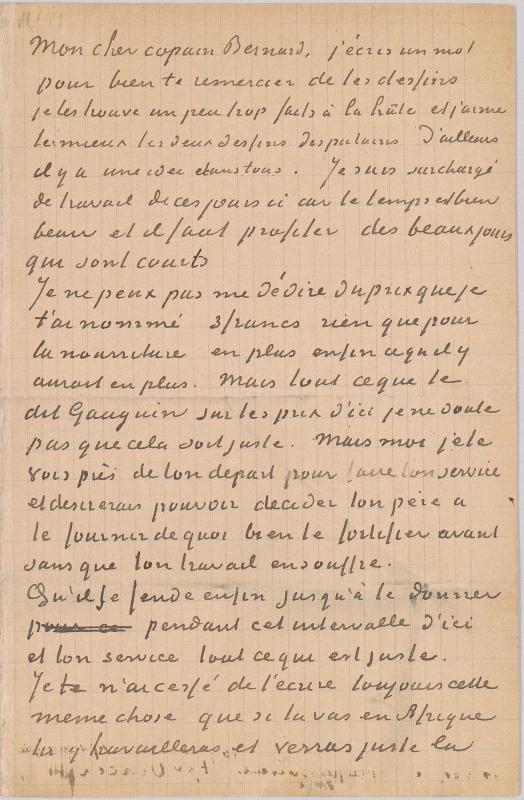 Mon cher copain Bernard, j'écris un mot
pour bien te remercier de tes dessins
je les trouve un peu trop faits à la hâte et j'aime
le mieux les deux dessins des putains D'ailleurs
il y a une idée dans tous. Je suis surchargé
de travail de ces jours ci car le temps est bien
beau et il faut profiter des beaux jours
qui sont courts
Je ne peux pas me dédire du prix que je
t'ai nommé 3 francs rien que pour
la nourriture en plus enfin ce qu'il y
aurait en plus. Mais tout ce que te
dit Gauguin sur les prix d'ici je ne doute
pas que cela soit juste. Mais moi je te
vois près de ton départ pour faire ton service
et desirerais pouvoir decider ton père a
te fournir de quoi bien te fortifier avant
sans que ton travail en souffre.
Qu'il se fende enfin jusqu'à te donner
pendant cet intervalle d'ici
et ton service tout ce qui est juste.
Je te n'ai cessé de t'ecrire toujours cette
meme chose que si tu vas en Afrique
tu y travailleras et verras juste la